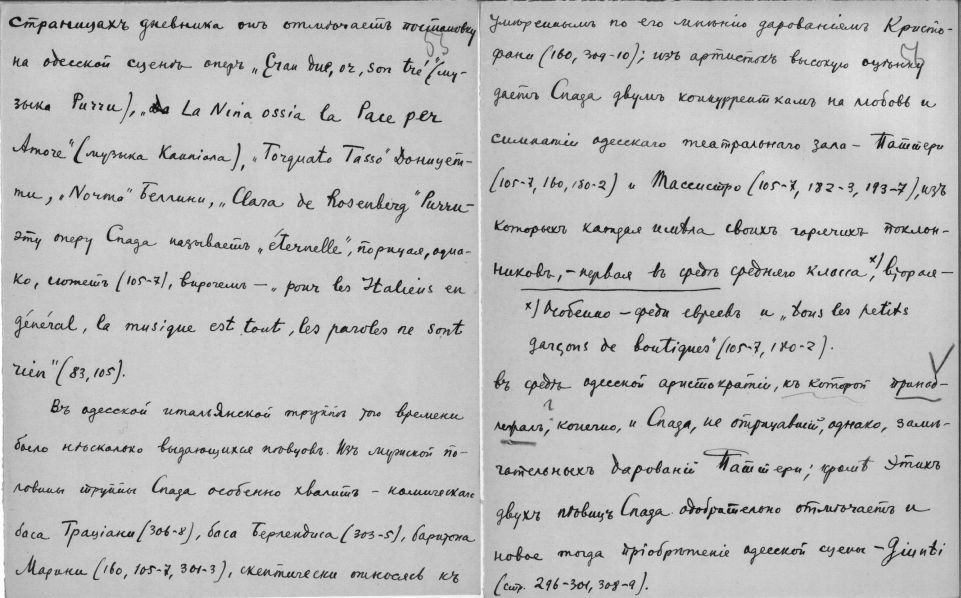 страницахъ дневника онъ отмѣчаетъ постановку
53
на одесской сценѣ оперъ „Eran due, or, son tré" (му-
зыка Риччи), „La Nina ossia la Pace per
Amore" (музыка), „Torquato Tasso" Доницет-
ти, „Norma" Беллини, „Clara de Rosenberg" Риччи –
эту оперу Спада называетъ „éternelle", порицая, одна-
ко, сюжетъ (105-7), впрочемъ – „pour les Italiens en
général, la musique est tout, les paroles ne sont
rien" (83, 105).
Въ одесской итальянской труппѣ того времени
было нѣсколько выдающихся пѣвцовъ. Изъ мужской по-
ловины труппы Спада особенно хвалитъ – комическаго
баса Граціани (306-8), баса Берлендиса (303-5), баритона
Марини (160, 105-7, 301-3), скептически относясь къ
умѣреннымъ по его мнѣнію дарованіемъ Кристо-
фани (160, 309-10); изъ артистокъ высокую оцѣнку
даетъ Спада двумъ конкурренткамъ на любовь и
симпатіи одесскаго театральнаго зала – Паттери
(105-7, 160, 180-2) и Тассистро (105-7, 182-3, 193-7), изъ
которыхъ каждая имѣла своихъ горячихъ поклон-
никовъ, – первая въ средѣ средняго класса x), вторая –
x) Особенно – среди евреевъ и „tous les petits
garçons de boutiques" (105-7, 180-2).
въ средѣ одесской аристократіи, къ которой принад-
лежалъ, конечно, и Спада, не отрицавшій, однако, замѣ-
чательныхъ дарованій Паттери; кромѣ этихъ
двухъ пѣвицъ Спада одобрительно отмѣчаетъ и
новое тогда пріобрѣтеніе одесской сцены – Giunti
(стр. 296-301, 308-9).